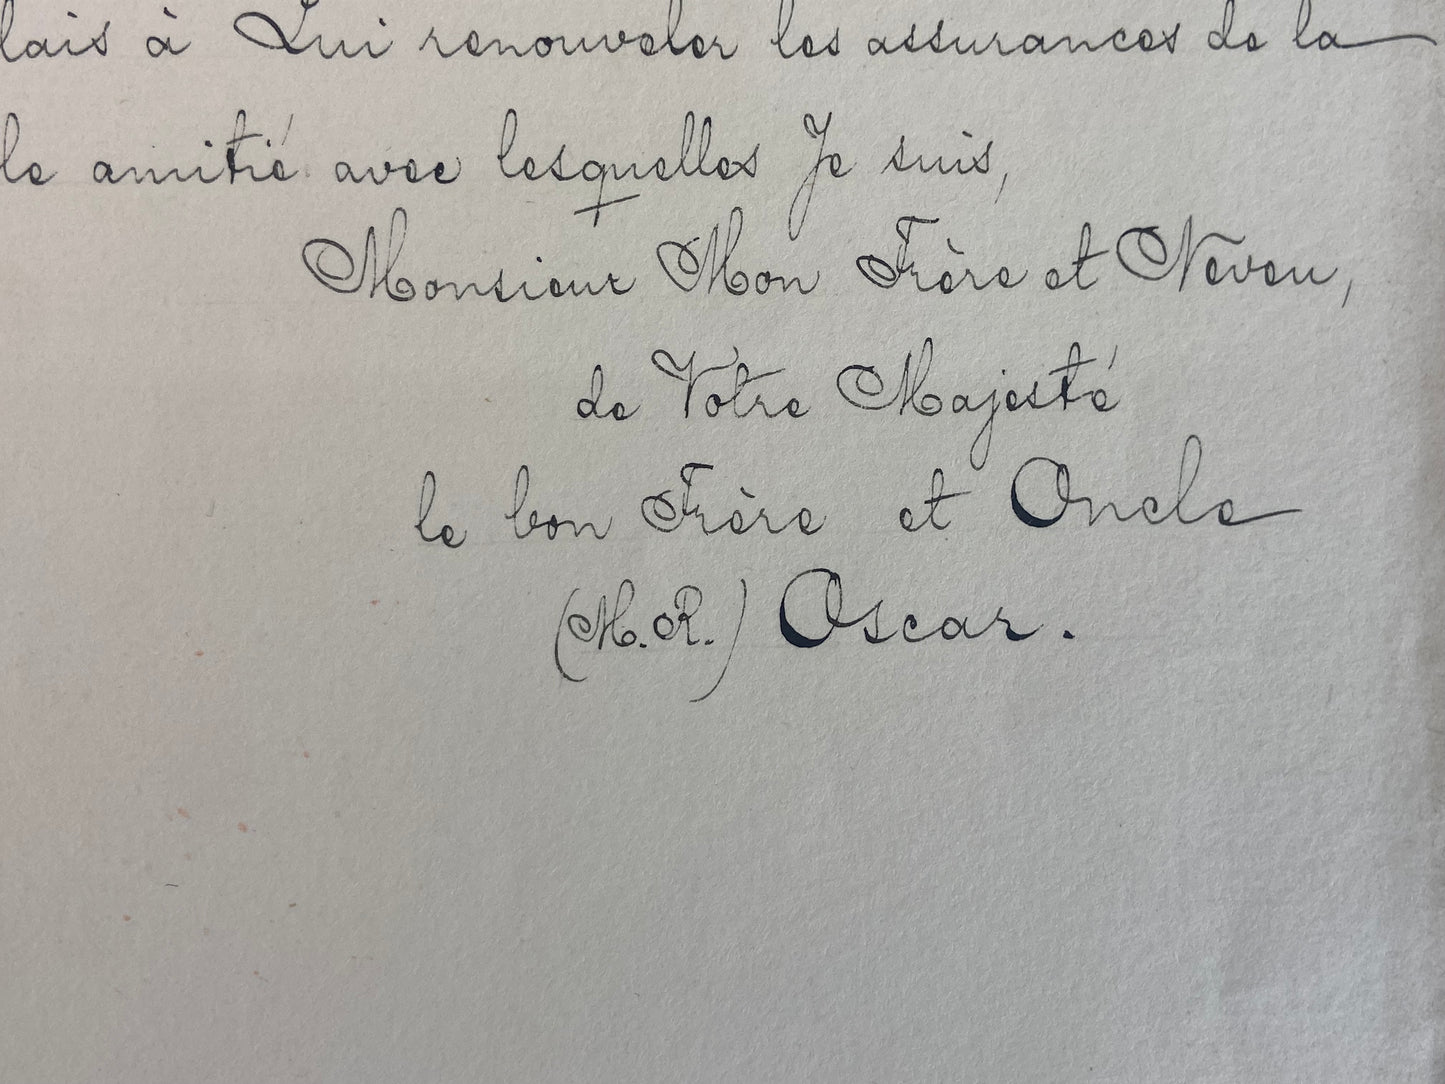 lais à Lui renouveler les assurances de la
le amitié avec lesquelles Je suis,
Monsieur Mon Frère et Neveu,
de Votre Majesté
le bon Frère et Oncle
(M.R.) Oscar.